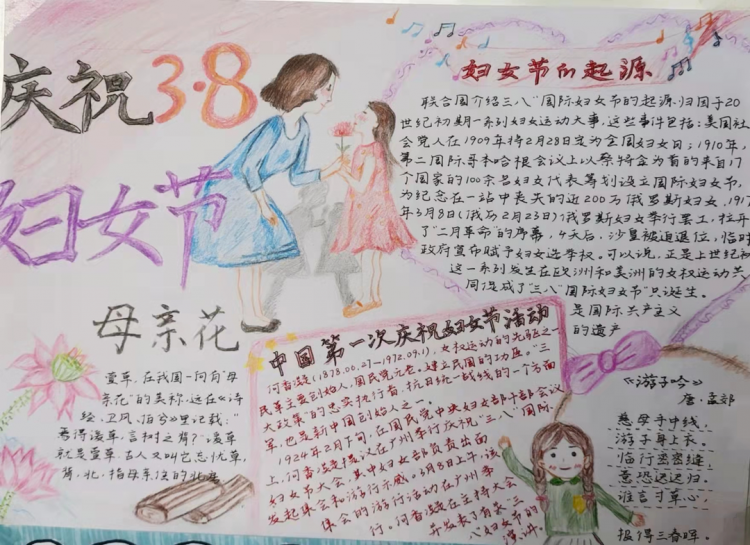 庆祝3·8
妇女节
妇女节的起源
联合国介绍三八"国际妇女节的起源.归因于20
世纪初期一系列妇女运动大事,这些事件包括:美国社
会党人在1909年将2月28日定为全国妇女日;1910年,
第二国际哥本哈根会议上以蔡特金为首的来自17
个国家的100余名妇女代表筹划设立国际妇女节,
为纪念在一站中丧夫的近200万俄罗斯妇女,1917
年3月8日(俄历2月23日)俄罗斯妇女举行罢工,拉开
了"二月革命"的序幕,4天后,沙皇被迫退位,临时
政府宣布赋予妇女选举权。可以说,正是上世纪初
这一系列发生在欧洲和美洲的女权运动共
同促成了"三八"国际妇女节"只诞生。
是国际共产主义
的遗产
母亲花
萱草,在我国一向有"母
亲花"的美称,远在《诗
经、卫风、伯兮》里记载:"
焉得谖草,言树之背?"谖草
就是萱草.古人又叫它忘忧草,
背,北,指母亲住的北
中国第一次庆祝妇女节活动
何香凝(1878.00.27—1972.09.1),女权运动的先驱之一
民革主要创始人,国民党元老,建立民国的功臣。"三
大政策"的忠实执行者.抗日统一战线的一个方面
军,也是新中国创始人之一。
1924年2月下旬,在国民党中央妇女部干部会议
上,何香凝提议在广州举行庆祝"三八"国际
妇女节大会,其中妇女部负责出面
发起集会和游行示威。3月8日上午,该
集会的游行活动在广州举
行。何香凝在主持大会
并发表了有关"三
八"妇女节的
演讲.
《游子吟》
唐.孟郊
慈母手中线,
游子身上衣。
临行密密缝
意恐迟迟归.
谁言寸草心.
报得三春晖.